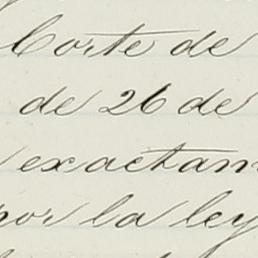 Corte de
de 26 de
exactam
por la ley